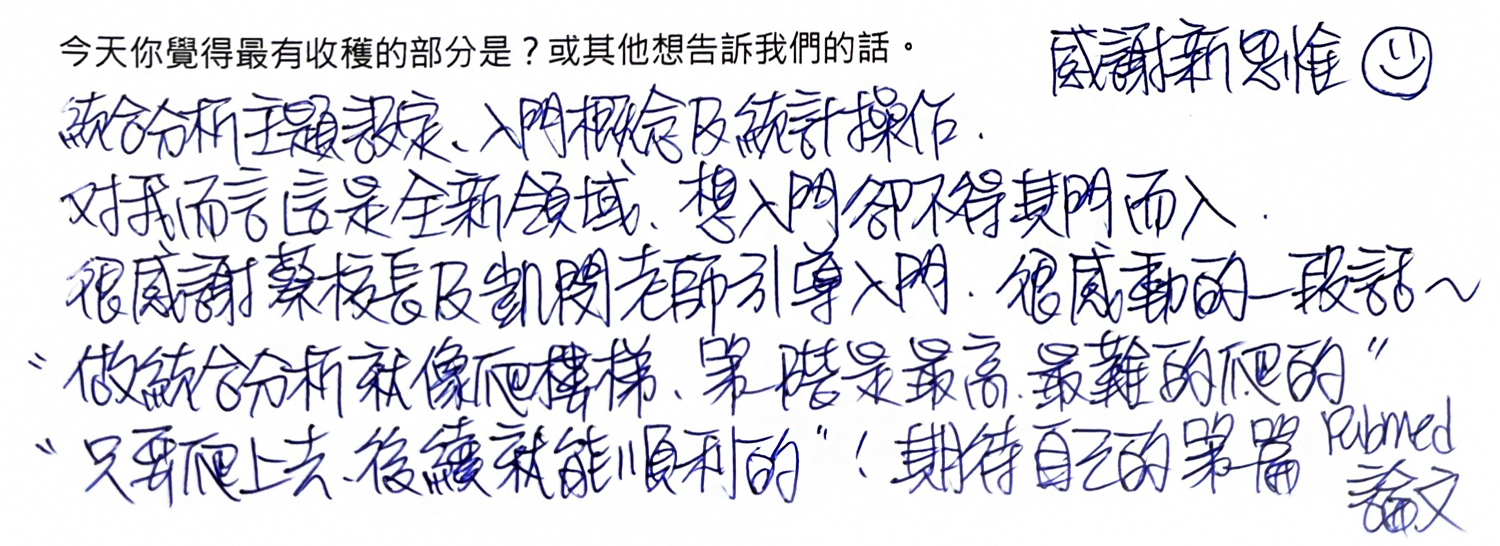 今天你覺得最有收穫的部分是？或其他想告訴我們的話。
感謝新思惟
統合分析主題設定、入門概念及統計操作.
对我而言這是全新領域、想入門卻不得其門而入.
很感謝蔡校長及凱閔老師引導入門. 很感動的一段話～
“做統合分析就像爬樓梯、第一階是最高、最難的爬的”
“只要爬上去、後續就能順利的”！期待自己的第一篇 Pubmed
論文